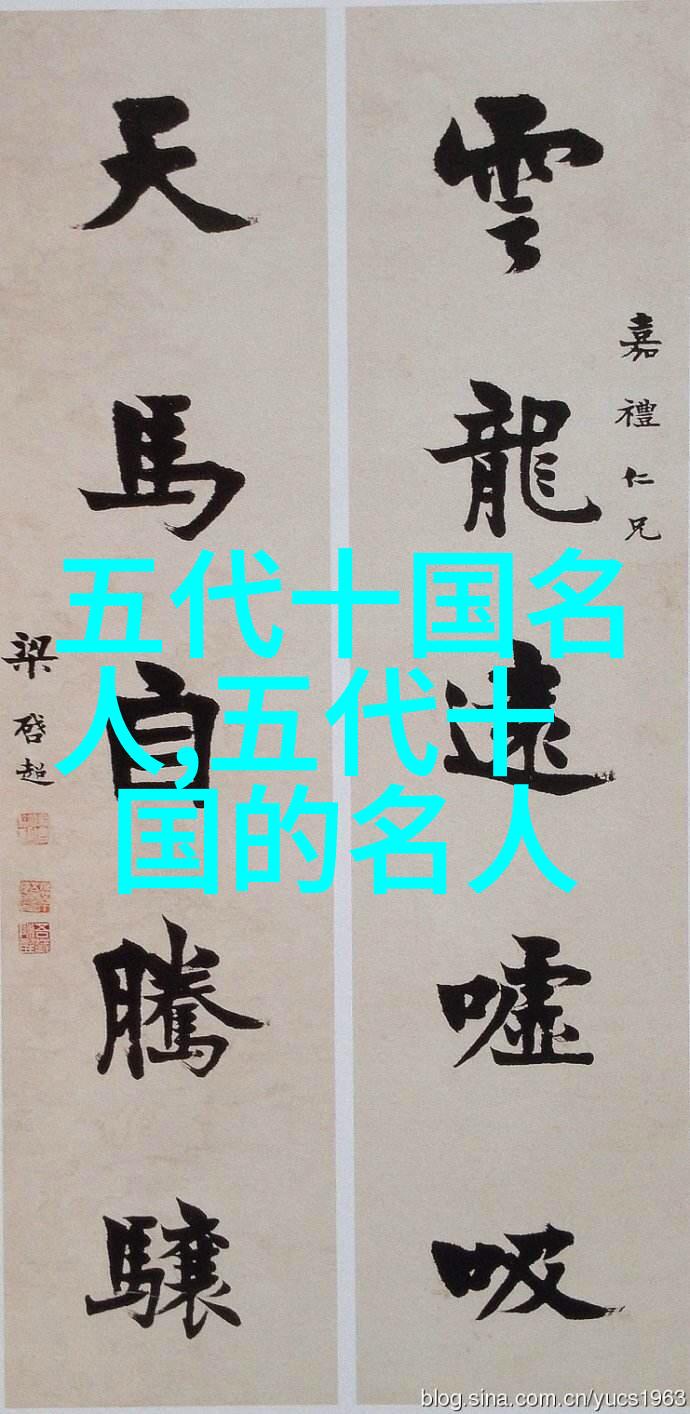 雲龍遠噓吸
嘉禮仁兄
天馬自騰驤
梁啓超
五代十国名
人,五代十
国的名人
blog.sina.com.cn/yucs1963